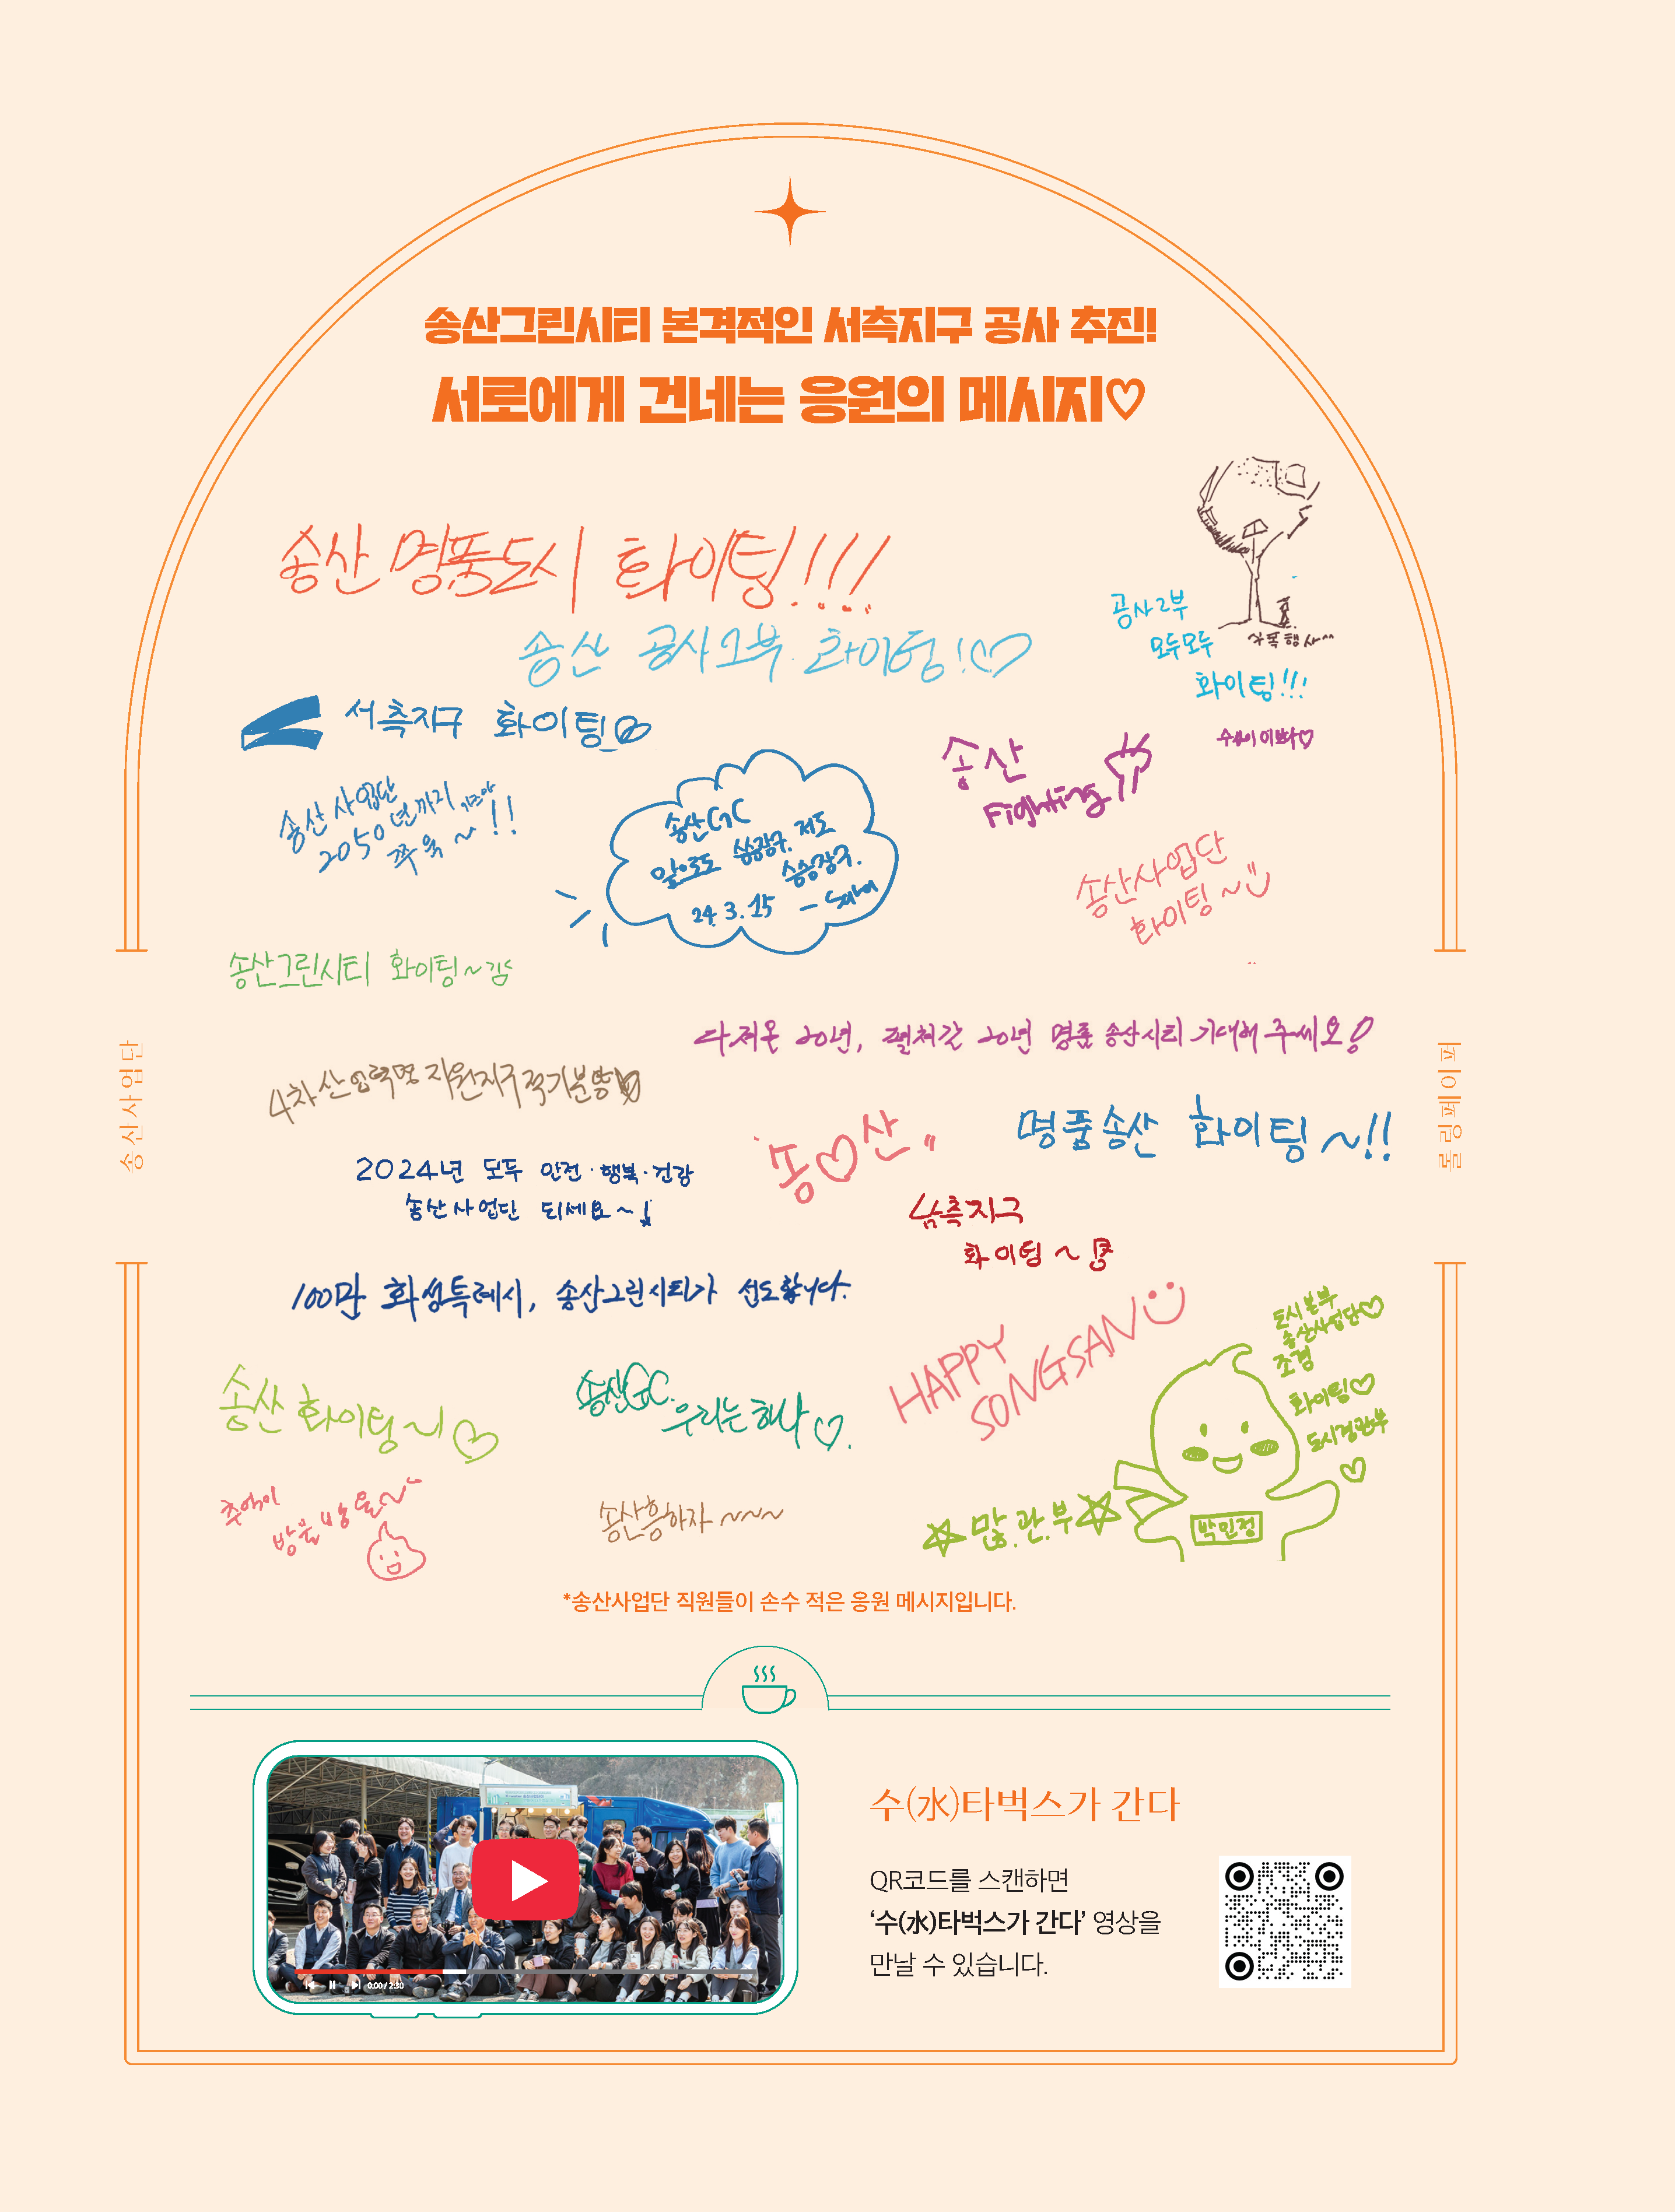 송산그린시티 본격적인 서측지구 공사 추진!
서로에게 건네는 응원의 메시지♡
송산 명품도시 화이팅!!!
송산 공사2부 화이팅!♡
공사2부
모두모두
화이팅!!!
서측지구 화이팅
송산
Fighting
송산 사업단
2050년까지
쭈욱~!!
송산GC
앞으로도 승승장구. 저도
승승장구.
24.3.15
송산사업단
화이팅~
송산그린시티 화이팅~
다져온 20년, 펼쳐갈 20년 명품 송산시티 기대해 주세요!
4차산업혁명 지원지구적기분양
송산사업단
롤링페이퍼
명품송산 화이팅~!!
송♡산
2024년 모두 안전·행복·건강
송산사업단 되세요~!
남측지구
화이팅~
100만 화성특례시, 송산그린시티가 선도합니다.
HAPPY
SONGSAN
도시본부
송산사업단♡
조경
화이팅♡
도시경관부
♡
송산 화이팅~!♡
송산GC.
우리는 하나♡.
추억이
방울방울~
송산흥하자~~~
많.관.부
박민정
*송산사업단 직원들이 손수 적은 응원 메시지입니다.
수(水)타벅스가 간다
QR코드를 스캔하면
‘수(水)타벅스가 간다’ 영상을
만날 수 있습니다.
0:00 / 2:30